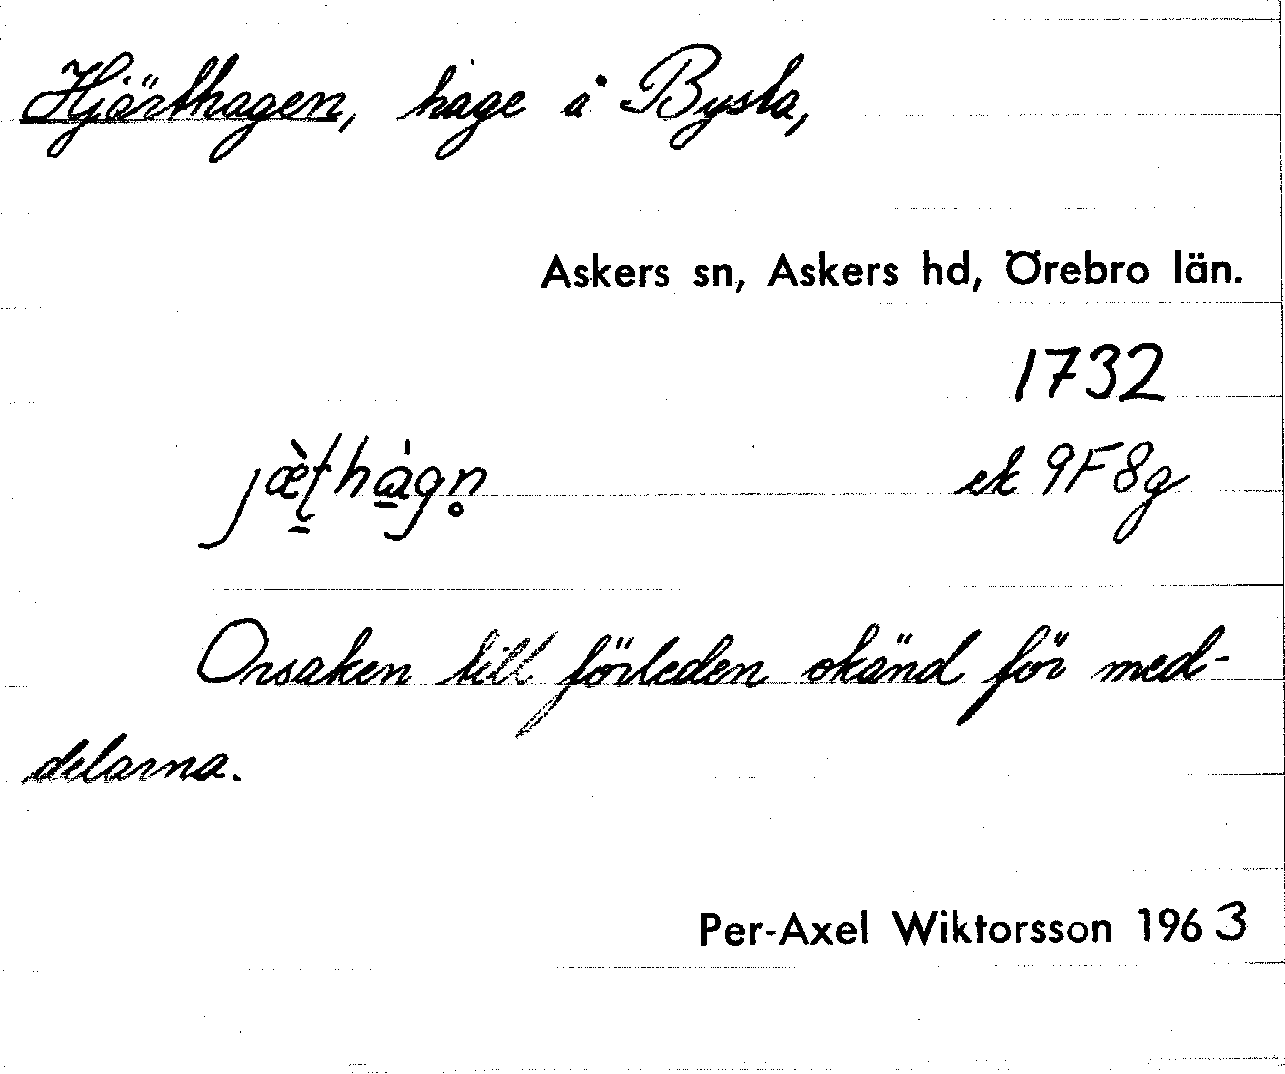 Hjärthagen, hage å Bysta,
Askers sn, Askers hd, Örebro län.
1732
ek 9F8g
Orsaken till förleden okänd för med-
delarna.
Per-Axel Wiktorsson 1963